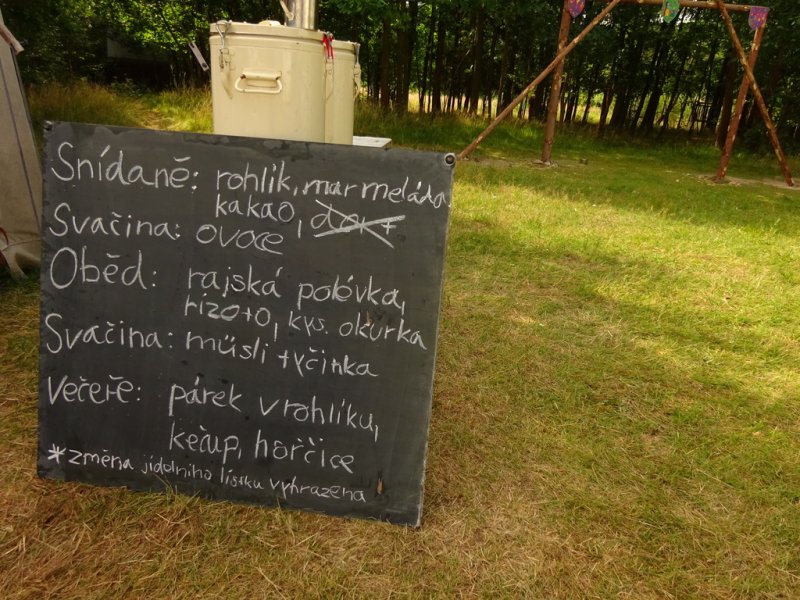 Snídaně: rohlík, marmeláda,
kakao,
Svačina: ovoce
Oběd: rajská polóvka,
rizoto, kys. okurka
Svačina: müsli tyčinka
Večeře: párek v rohlíku,
kečup, hořčice
*změna jídelního lístku vyhrazena